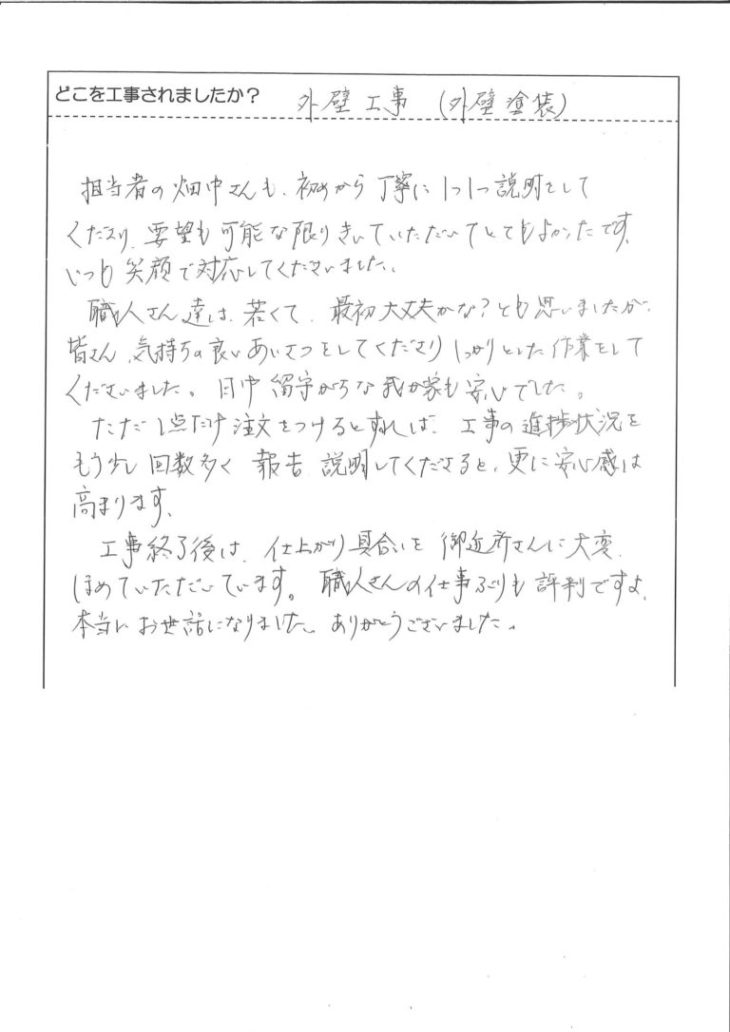 どこを工事されましたか? 外壁工事 (外壁塗装)
担当者の畑中さんも、初めから丁寧に1つ1つ説明をして
くださり、要望も可能な限りきいていただいてとてもよかったです。
いつも笑顔で対応してくださいました。
職人さん達は、若くて、最初大丈夫かな?とも思いましたが、
皆さん、気持ちの良いあいさつをしてくださりしっかりとした作業をして
くださいました。日中留守がちな我が家も安心でした。
ただ1点だけ注文をつけるとすれば、工事の進捗状況を
もう少し回数多く報告、説明してくださると、更に安心感は
高まります。
工事終了後は、仕上がり具合いを御近所さんに大変
ほめていただいています。職人さんの仕事ぶりも評判ですよ。
本当にお世話になりました。ありがとうございました。